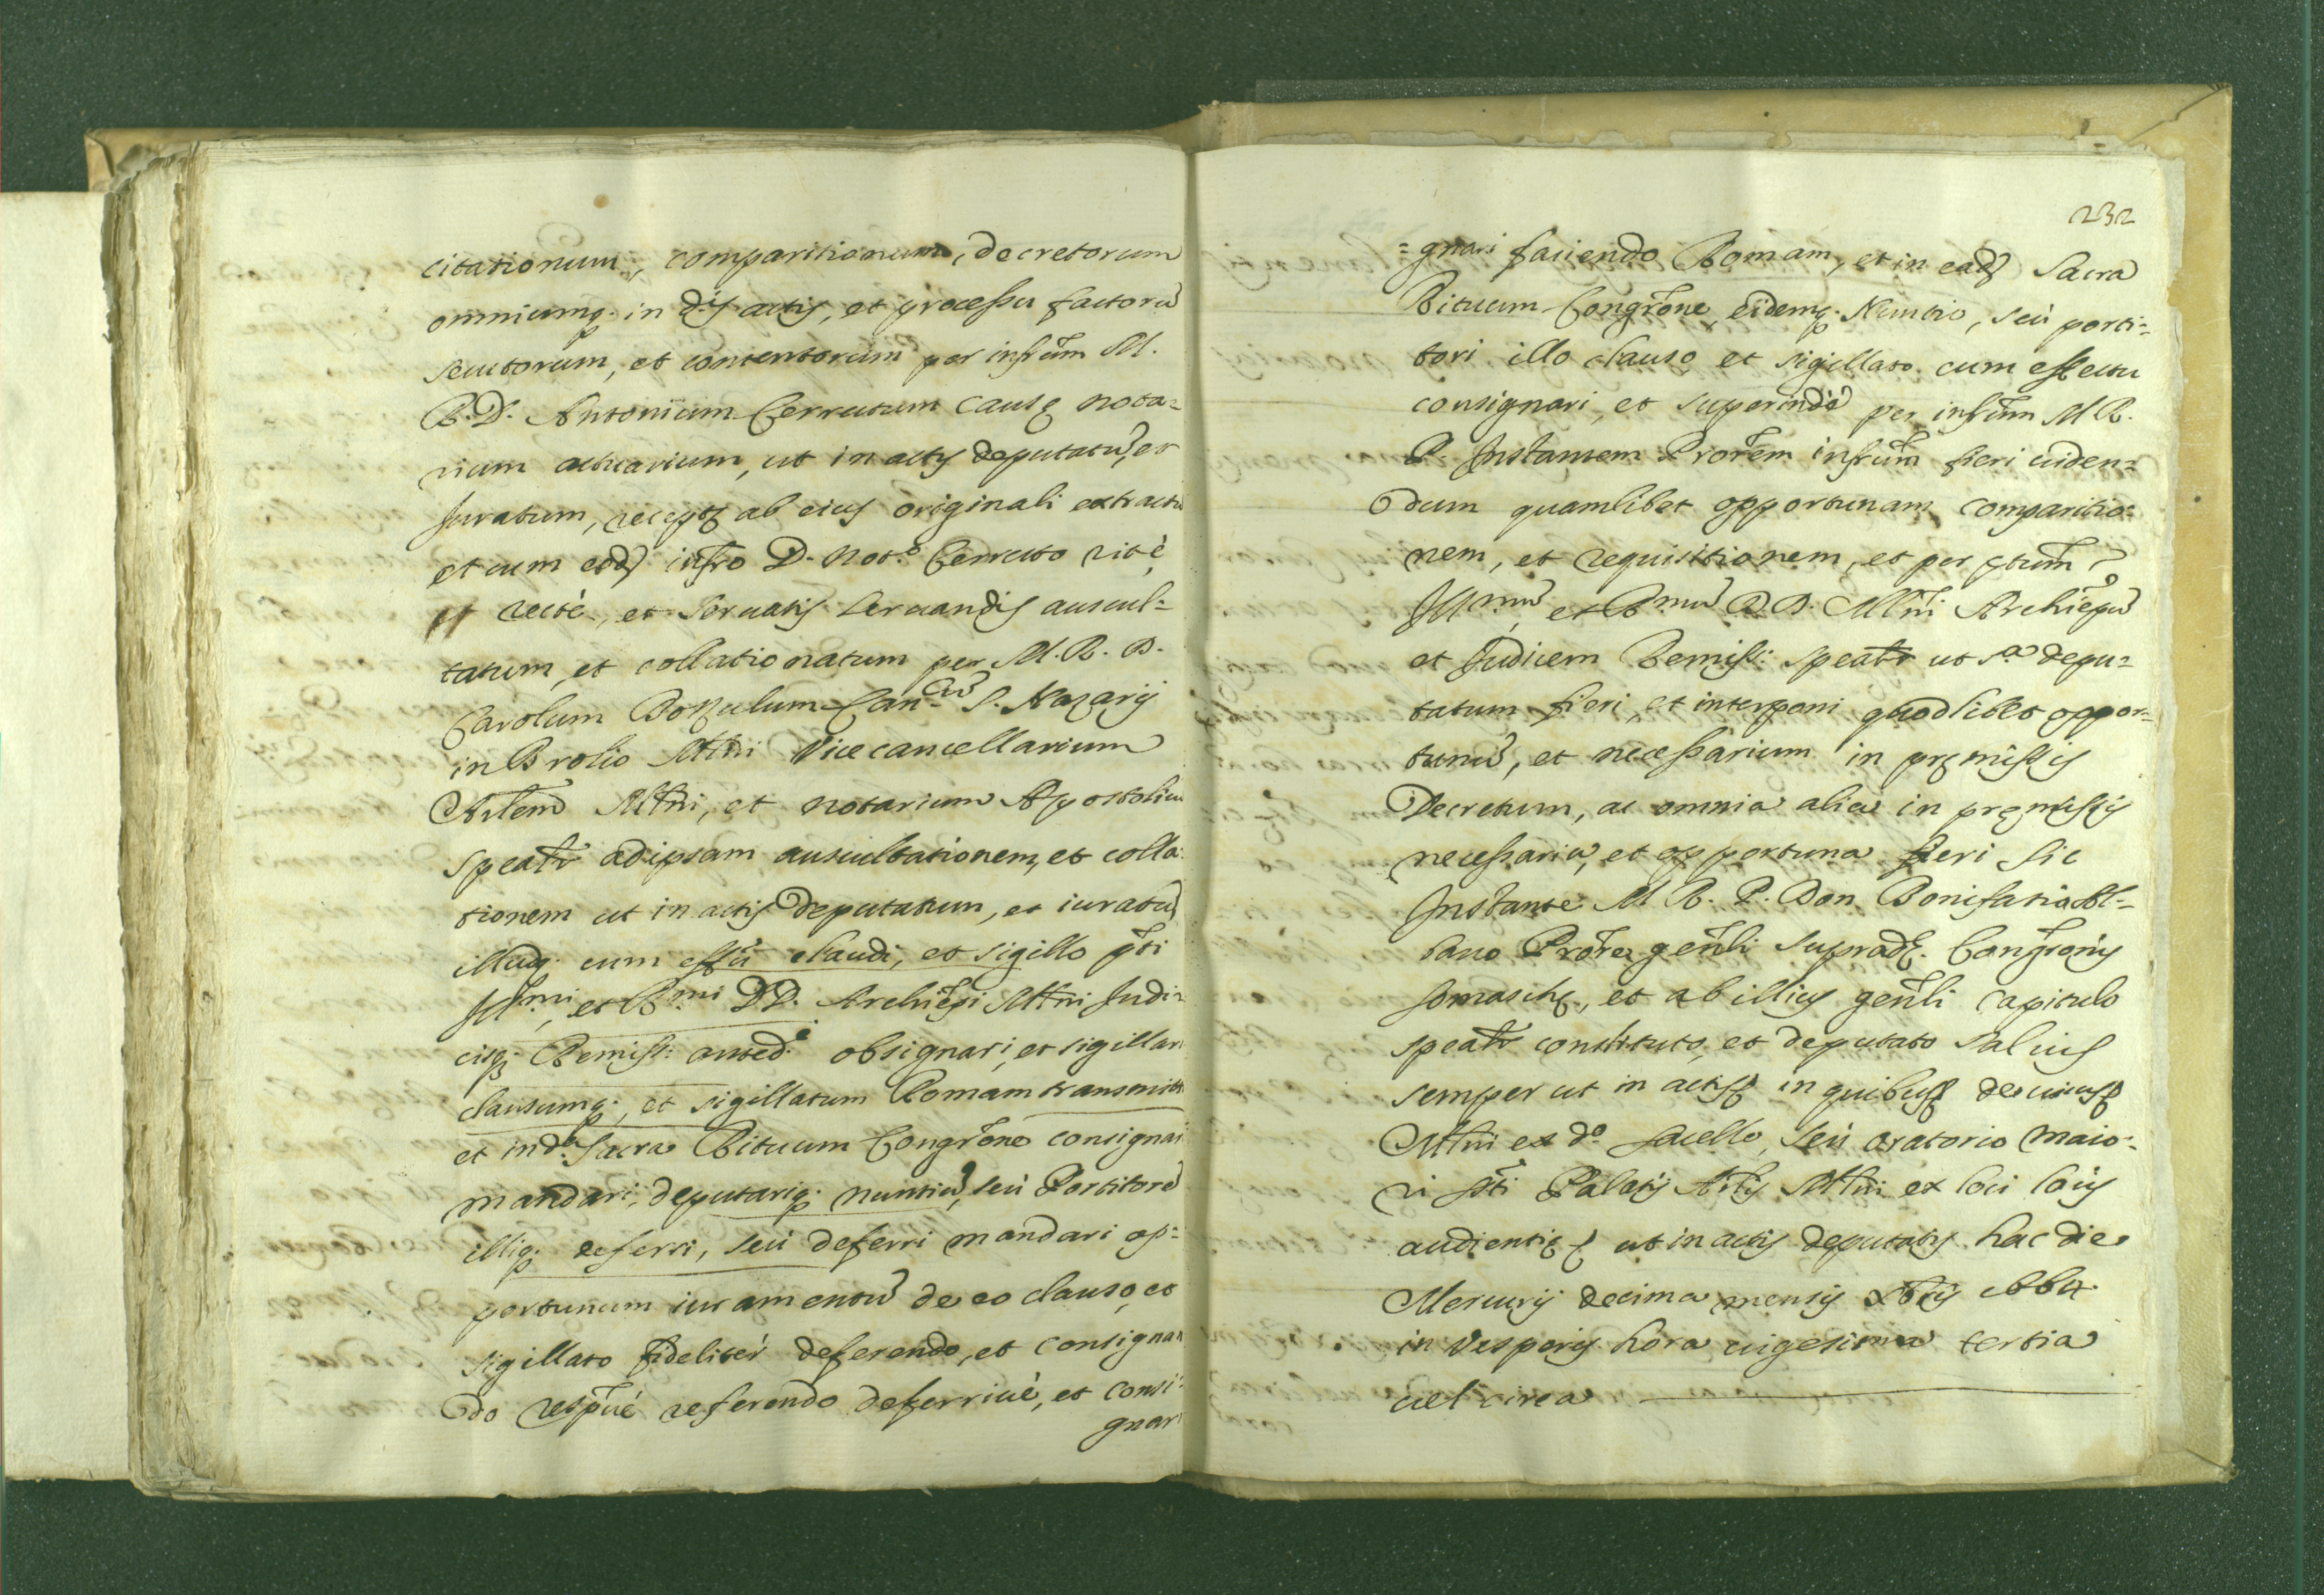 citationum, comparitionum, decretorum
omniumq. in d.is actis, et processu factorũ
secutorum, et contentorum per infrũm M.
R. D. Antonium Cerrutum causę nota=
rium actuarium, ut in actis deputatũ, et
Juratum, recepti ab eius originali extractũ
et cum eod. infro D. Not.o Cerruto ritè,
et rectè, et servatis servandis auscul=
tatum, et collationatum per M. R. D.
Carolum Can.cũ S. Nazarij
in Brolio Mlni Vicecancellarium
Arlem Mlni, et notarium Apostolicũ
speatr ad ipsam auscultationem, et colla=
tionem ut in actis deputatum, et iuratũ
illudq. cum effũ claudi, et sigillo pti
Jll.mi, et R.mi DD. Archiepi Mlni Judi=
cisq. Remiss: anted.i obsignari, et sigillari
clausumq., et sigillatum Romam transmitti
et in d.a Sacra Rituum Congrõne consignari
mandari, deputariq. nuntiũ, seù Portitorẽ
illiq. deferri, seù deferri mandari op=
portunum iuramentũ de eo clauso, et
sigillato fideliter deferendo, et consignan
do respũè referendo deferrivè, et consi=
gnari
232
=gnari faciendo Romam, et in ead. Sacra
Rituum Congrõne, eidemq. Nuntio, seù porti=
tori illo clauso, et sigillato cum effectu
consignari, et superindè per infrũm M R.
P. Jnstantem Prorem infrũm fieri viden=
dum quamlibet opportunam comparitio=
nem, et requisitionem, et per ptum
Jll.mũ, et R.mũ D. D. Mlni Archiepũ
et Judicem Remiss: speatr ut s.a depu=
tatum fieri, et interponi quodlibet oppor=
tunũ, et necessarium in pręmissis
Decretum, ac omnia alia in pręmissis
necessaria, et opportuna fieri sic
Jnstante M R. P. Don Bonifatio Al=
bano Prore genli suprad.ę Congrõnis
Somaschę, et ab illius genli capitulo
speatr constituto, et deputato salius
semper ut in actis in quibus de cuius
Mlni ex d.o sacello, seù oratorio maio=
ri pti Palatij Arlis Mlni ex loci locis
audientię ut in actis deputatis hac die
Mercurij decima mensis Xbris 1664.
in Vesperis hora vigesima tertia
vel circa